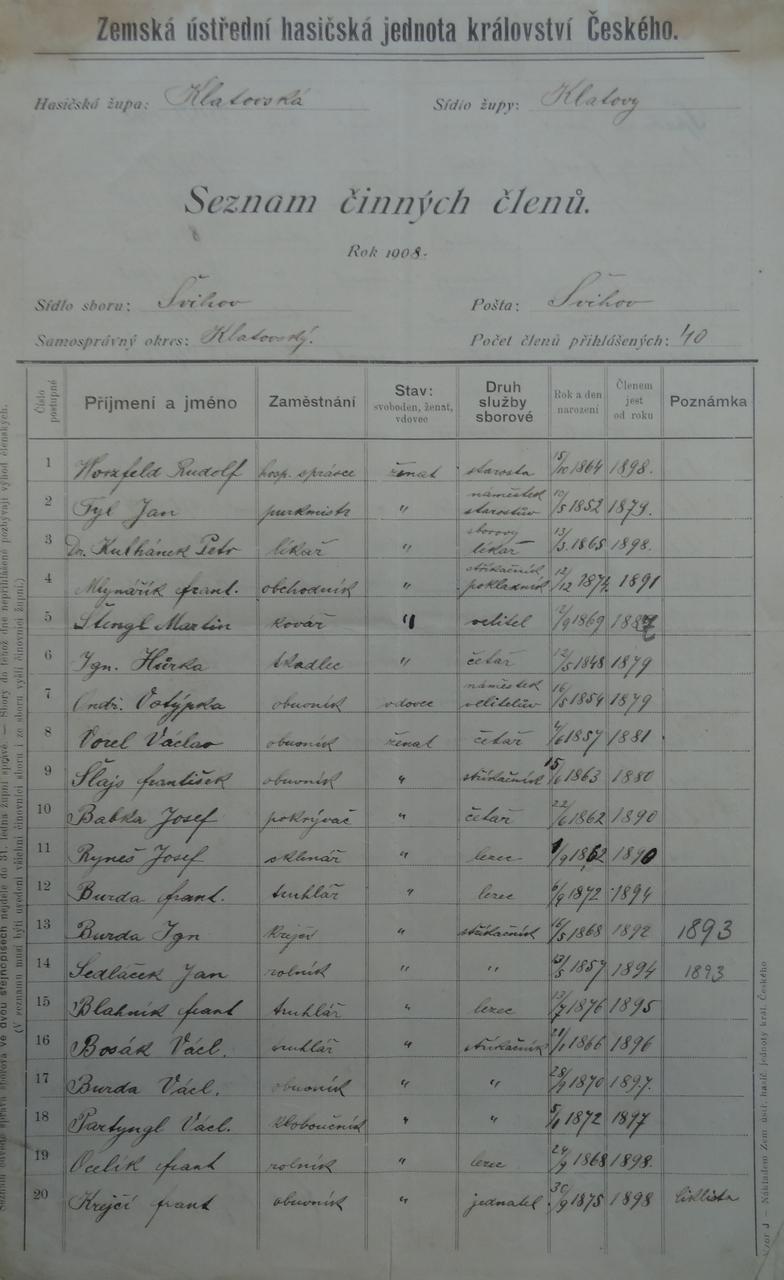 Zemská ústřední hasičská jednota království Českého.
Hasičská župa: Klatovská Sídlo župy: Klatovy
Seznam činných členů.
Rok 1908.
Sídlo sboru: Švihov Pošta: Švihov
Samosprávný okres: Klatovský. Počet členů přihlášených: 40
Číslo postupné Příjmení a jméno Zaměstnání Stav: svoboden, ženat, vdovec Druh služby sborové Rok a den narození Členem jest od roku Poznámka
1 Horzfeld Rudolf hosp. správce ženat starosta 15/10 1864 1898.
2 Tyl Jan purkmistr " náměstek starostův 10/5 1852 1879.
3 Dr. Kulhánek Petr lékař " sborový lékař 13/3 1865 1898.
4 Mlynářík frant. obchodník " stříkačník pokladník 12/12 1874 1891
5 Štengl Martin kovář " velitel 7/9 1869 1887
6 Ign. Hůrka tkadlec " četař 12/5 1848 1879
7 Ondř. Votýpka obuvník vdovec náměstek velitelův 16/5 1854 1879
8 Vorel Václav obuvník ženat četař 1857 1881
9 Šlajs františek obuvník " stříkačník 1863 1880
10 Babka Josef pokrývač " četař 22/6 1862 1890
11 Ryneš Josef sklenář " lezec 1/9 1862 1890
12 Burda frant. truhlář " lezec 6/9 1872 1894
13 Burda Ign krejčí " stříkačník 1868 1892 1893
14 Sedláček Jan rolník " " 1857 1894 1893
15 Blahník frant truhlář " lezec 13/7 1876 1895
16 Bosák Václ. truhlář " stříkačník 21/1 1866 1896
17 Burda Václ. obuvník " " 28/9 1870 1897.
18 Partyngl Václ. kloboučník " " 1872 1897
19 Ocelík frant rolník " lezec 24/9 1868 1898.
20 Krejčí frant obuvník " jednatel 30/9 1875 1898 ciklista
(V seznamu musí býti uvedeni všichni činovníci sboru i ze sboru vyšlí činovníci župní.)
Vzor J — Nákladem Zem. ústř. hasič. jednoty král. Českého